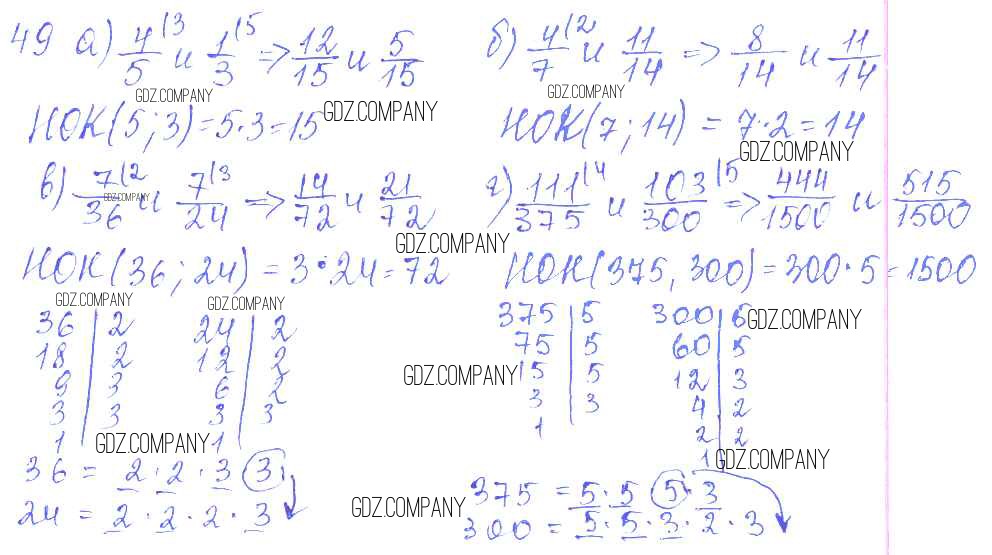 49 а) 4/5 (3 и 1/3 (5 => 12/15 и 5/15
НОК(5;3)=5·3=15
б) 4/7 (2 и 11/14 => 8/14 и 11/14
НОК(7;14) = 7·2=14
в) 7/36 (2 и 7/24 (3 => 14/72 и 21/72
НОК(36;24) = 3·24=72
36 | 2
18 | 2
9 | 3
3 | 3
1
24 | 2
12 | 2
6 | 2
3 | 3
1
36 = 2·2·3 3;
24 = 2·2·2·3
г) 111/375 (4 и 103/300 (5 => 444/1500 и 515/1500
НОК(375,300)=300·5=1500
375 | 5
75 | 5
15 | 5
3 | 3
1
300 | 5
60 | 5
12 | 3
4 | 2
2 | 2
1
375 = 5·5 5·3
300 = 5·5·3·2·3
GDZ.COMPANY
GDZ.COMPANY
GDZ.COMPANY
GDZ.COMPANY
GDZ.COMPANY
GDZ.COMPANY
GDZ.COMPANY
GDZ.COMPANY
GDZ.COMPANY
GDZ.COMPANY
GDZ.COMPANY
GDZ.COMPANY
GDZ.COMPANY